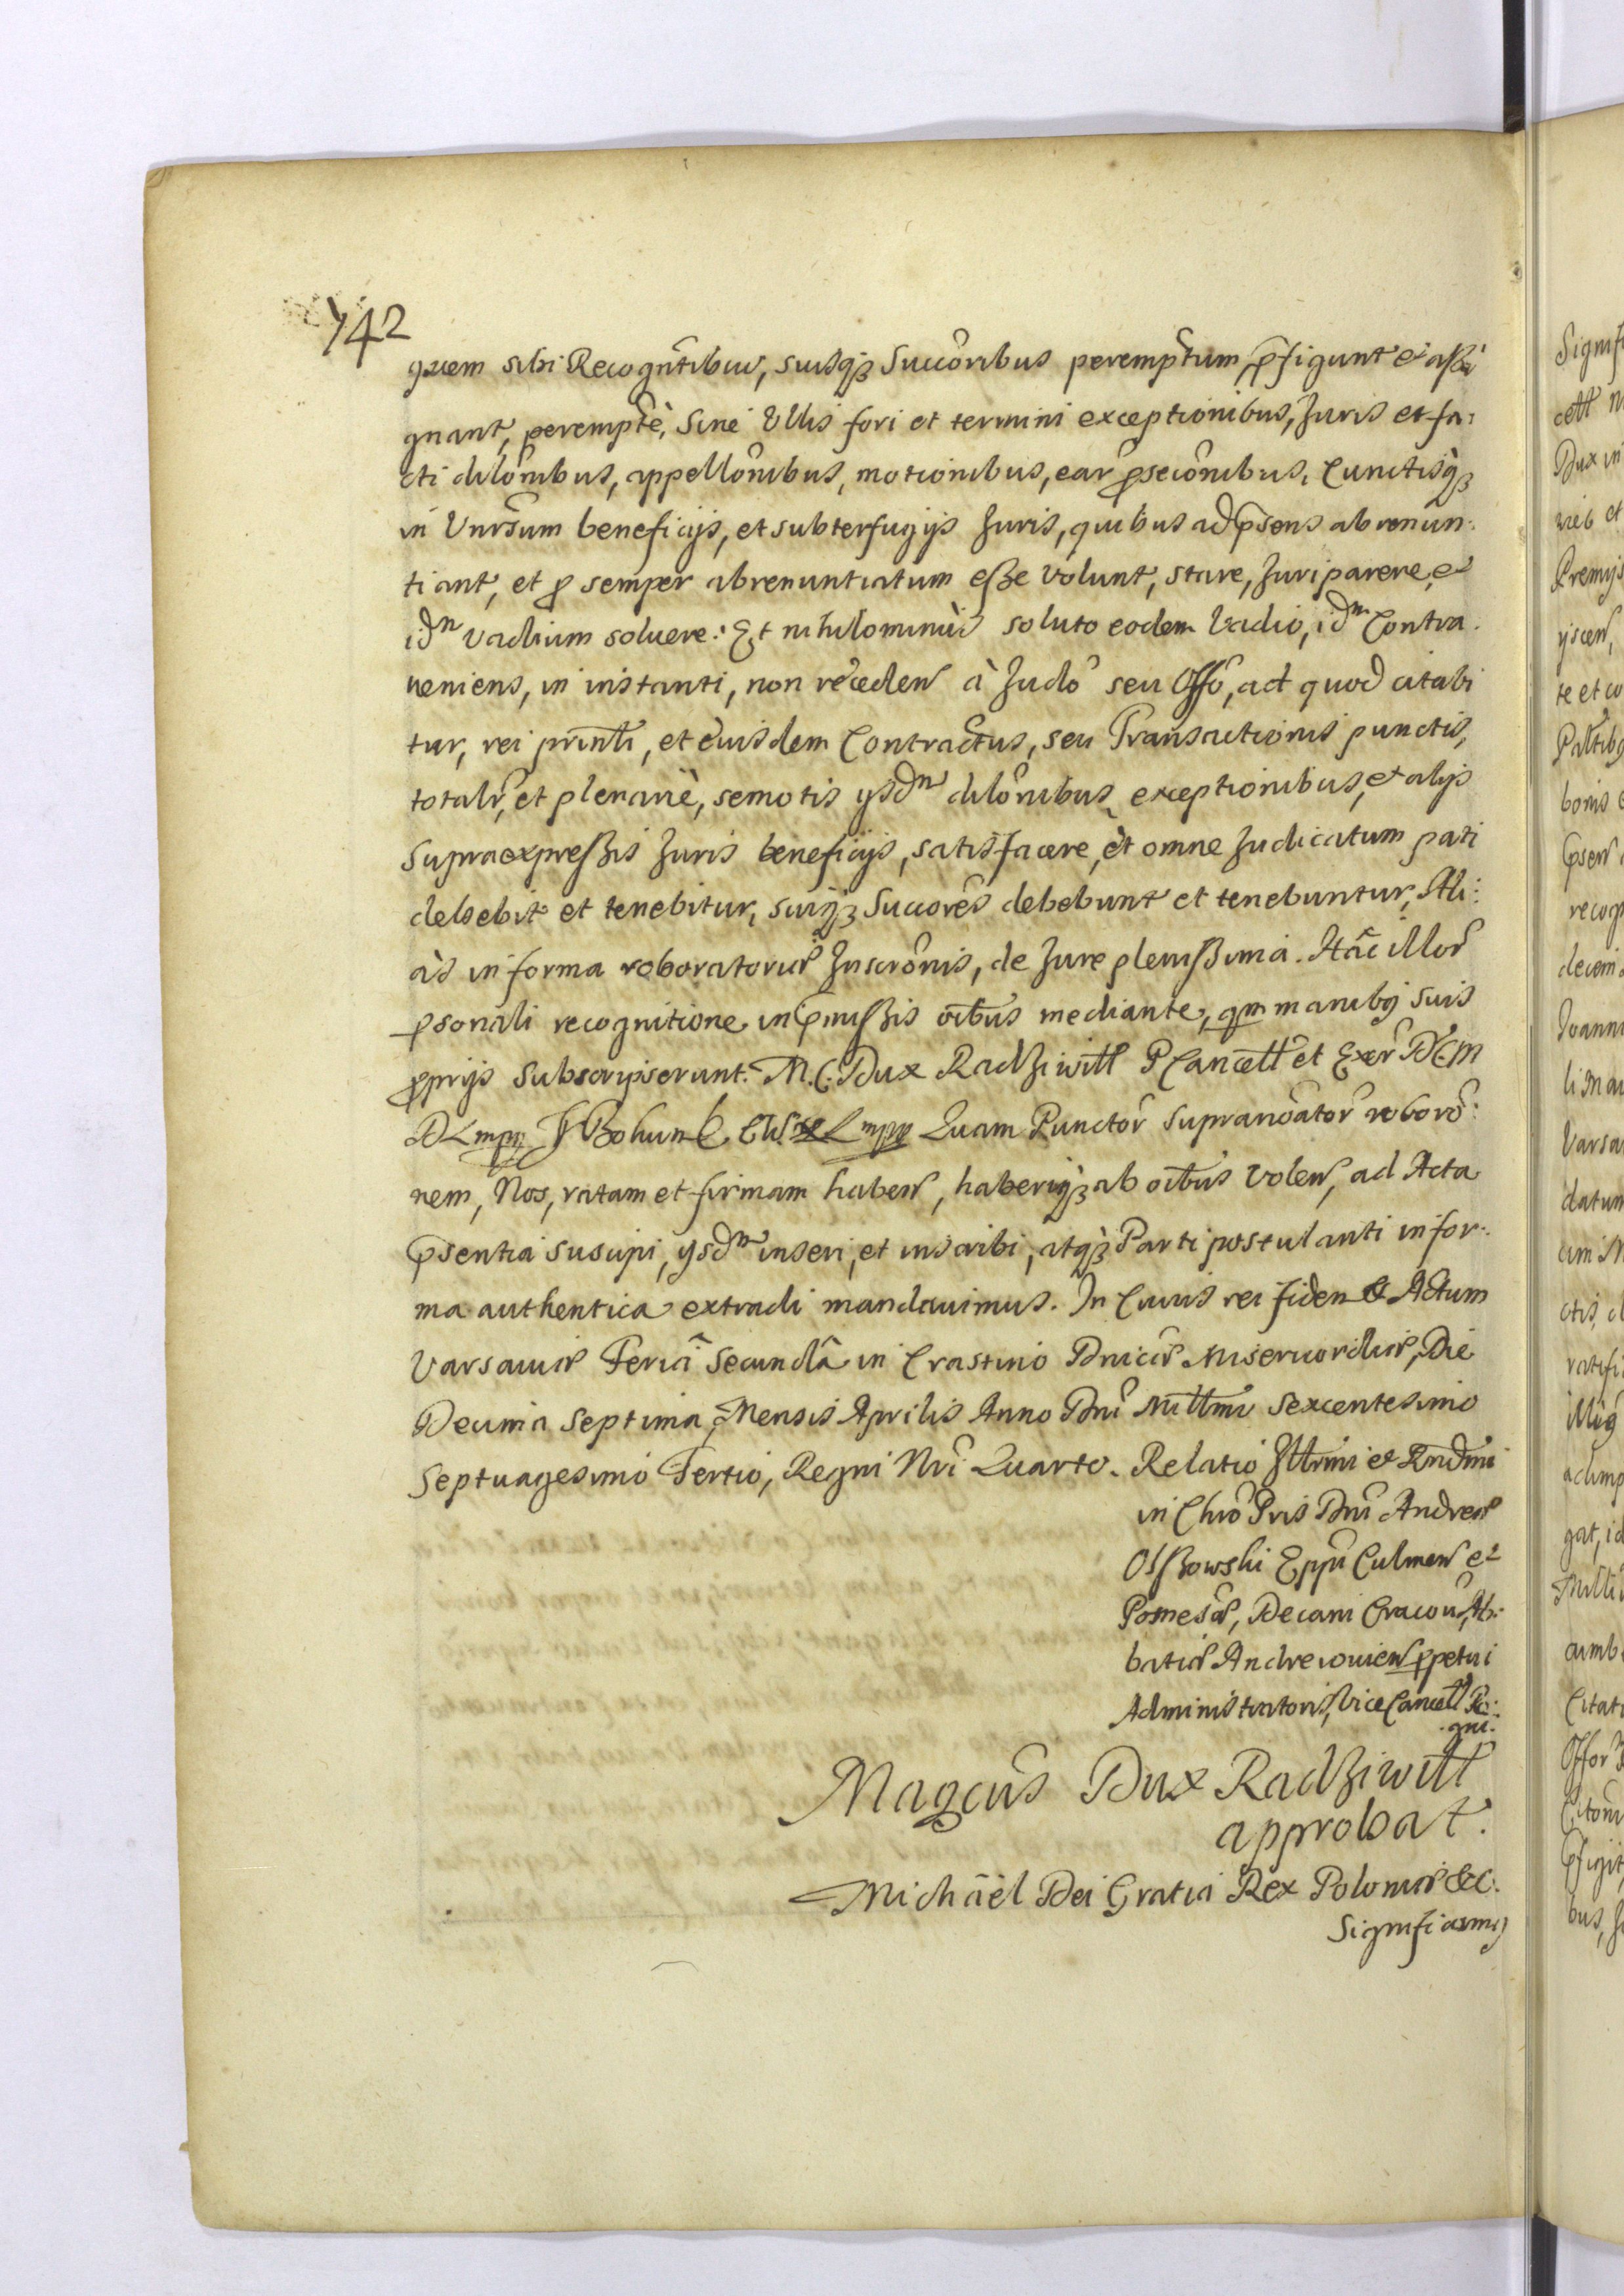 742
quem sibi Recogñtibus, suisq₃ Succoribus peremptum, p̄figunt et assi
gnant, perempte, Sine Ullis fori et termini exceptionibus, Juris et fa:
cti dilônibus, appellônibus, motionibus, ear̂ ꝓsecônibus, Cunctisq₃
in Unrsum beneficijs, et subterfugijs Juris, quibus ad p̄sens abrenun:
tiant, et ꝓ semper abrenuntiatum eße Volunt, stare, Juri parere, et
idᵐ vadium soluere: Et nihilominus soluto eodem Vadio, idᵐ Contra.
ueniens, in instanti, non receden̄ à Judô seu Offô, ad quod citabi
tur, rei prinlî, et eiusdem Contractus, seu Transactionis punctis,
totalr̂, et plenariè, semotis ysdᵐ dilônibus exceptionibus, et alijs
supraexpreßis Juris beneficijs, satisfacere, et omne Judicatum pati
debebit et tenebitur, suiq₃ Succores debebunt et tenebuntur, Ali:
às in forma roboratoriæ Inscrônis, de Jure plenißima. Hâc illor̂
ꝑsonali recognitione in p̄mißis oîbus mediante, qm manibq suis
ꝓprijs Subscripserunt. M. C. Dux Radziwiłł P Cancell et Exer̂ D C M
D L mpp J Bohun C. EW L mpp Quam Punctor̂ supranôator̂ roborô:
nem, Nos, ratam et firmam haben̄, haberiq₃ ab oîbus Volen̄, ad Acta
p̄sentia suscipi, ysdᵐ inseri, et inscribi, atq₃ Parti postulanti in for:
ma authentica extradi mandauimus. In Cuius rei fidem & Actum
Varsauiæ Feria Secundâ in Crastino Dnicæ Misericordiæ, Die
Decima Septima, Mensis Aprilis Anno Dnî Millmo Sexcentesimo
Septuagesimo Tertio, Regni Nrî Quarto. Relatio Illrmi et Rndmi
in Chrô Pris Dnî Andreæ
Olßowski Eppî Culmen̄ et
Pomesâ, Decani Cracoû, Ab:
batiæ Andreiouien̄ ꝑpetui
Administratoris, Vice Cancell Re:
gni.
Magcûs Dux Radziwiłł
approbat.
Michäel Dei Gratia Rex Poloniæ &c.
Significamq